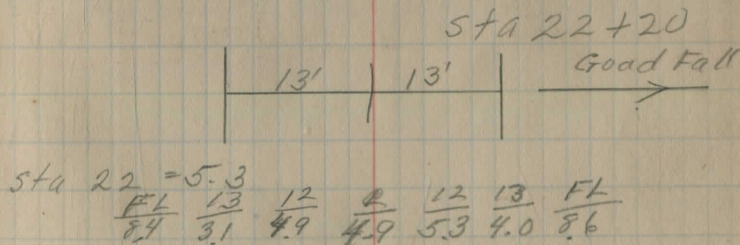 sta 22+20
Goad Fall
13' 13'
sta 22 = 5.3
FL/8.4 13/3.1 12/4.9 ℄/4.9 12/5.3 13/4.0 FL/8.6